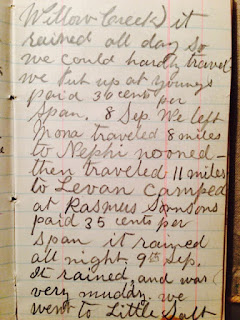 Willow Creek) it
rained all day so
we could hardly travel
we put up at youngs
paid 36 cents per
Span. 8 Sep. We left
Mona traveled 8 miles
to Nephi nooned—
then traveled 11 miles
to Levan camped
at Rasmus Sornsons
paid 35 cents per
span it rained
all night, 9th Sep.
It rained, and was
very muddy. we
went to Little Salt